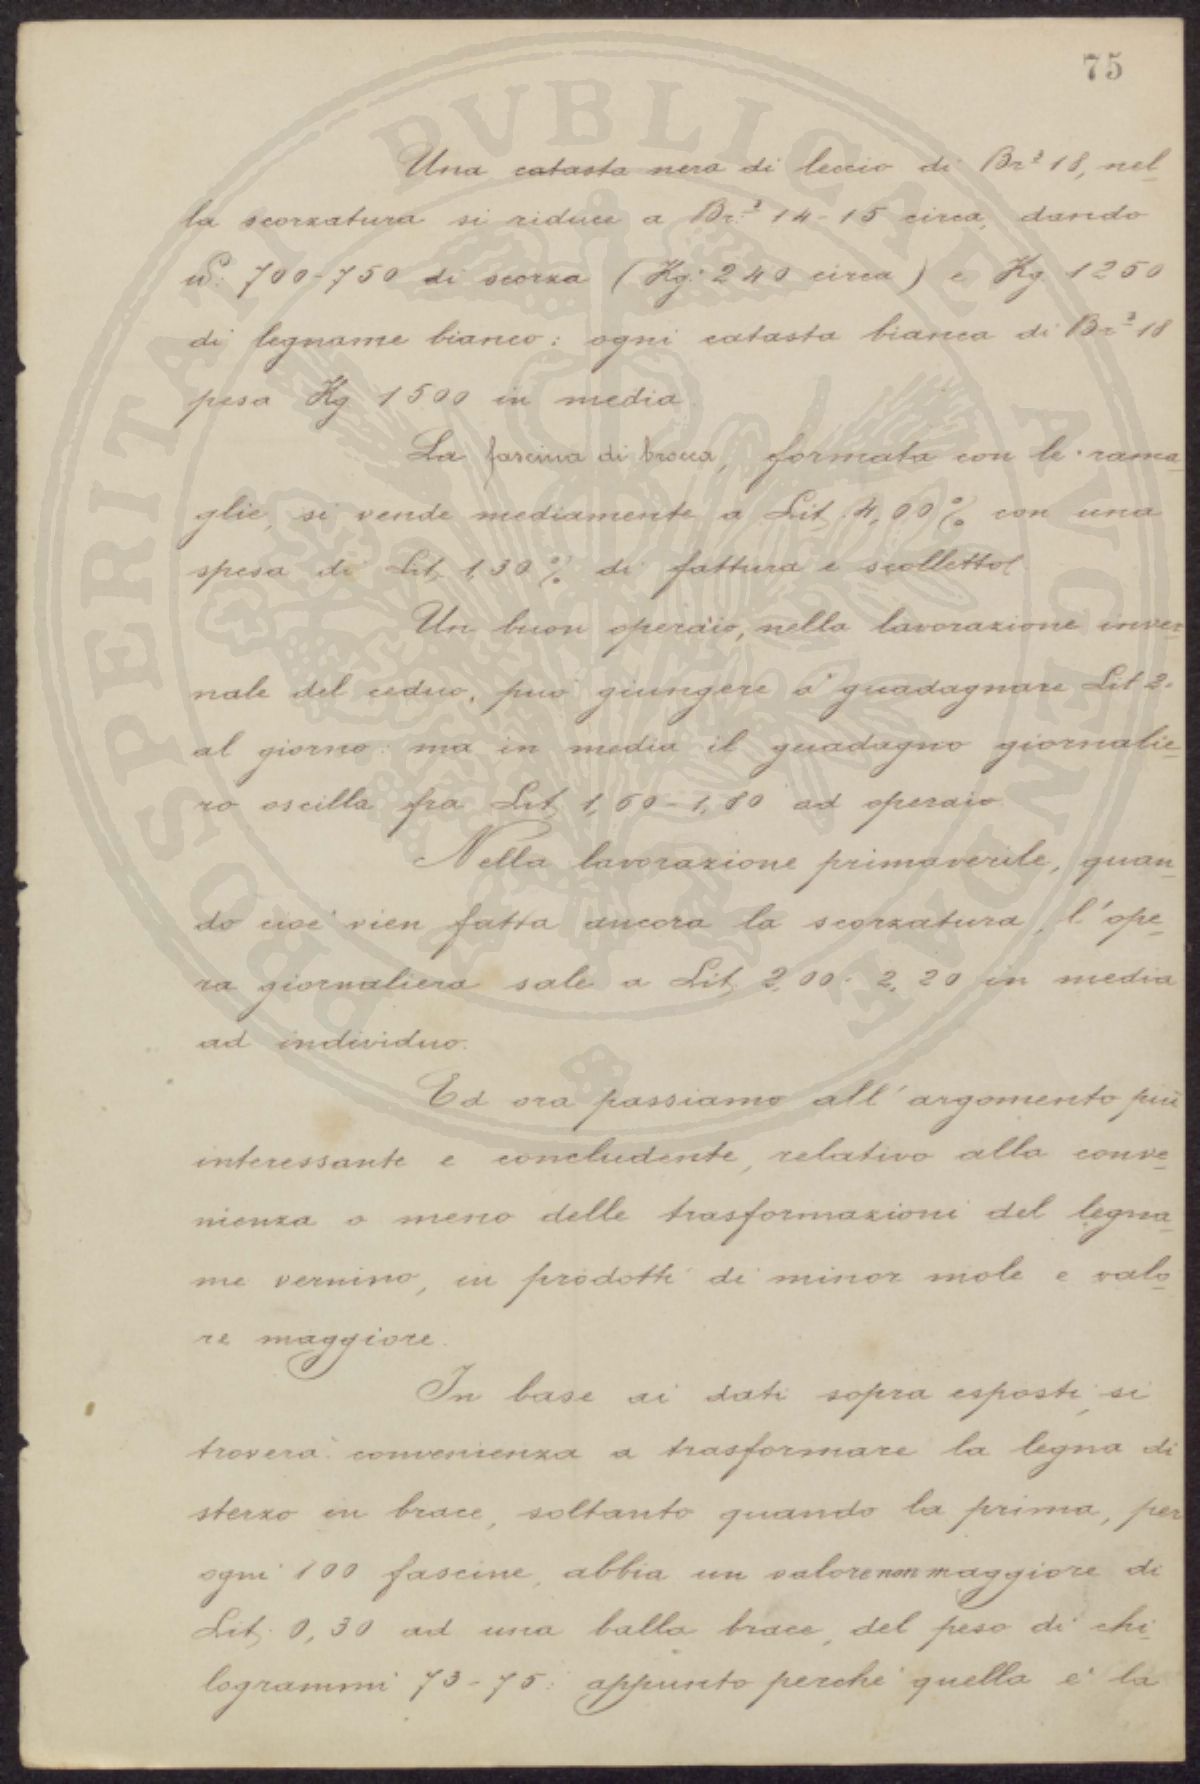 75
Una catasta nera di leccio di Br.³ 18, nel-
la scorzatura si riduce a Br.³ 14-15 circa, dando
℔: 700-750 di scorza (Kg: 240 circa) e Kg. 1250
di legname bianco: ogni catasta bianca di Br.³ 18
pesa Kg 1500 in media.
La fascina di brocca, formata con le rama-
glie, si vende mediamente a Lit. 4,00 % con una
spesa di Lit. 1,30 % di fattura e scollettol.
Un buon operaio, nella lavorazione inver-
nale del ceduo, può giungere a guadagnare Lit 2.
al giorno: ma in media il guadagno giornalie-
ro oscilla fra Lit. 1,60-1,80 ad operaio.
Nella lavorazione primaverile, quan-
do cioè vien fatta ancora la scorzatura, l'ope-
ra giornaliera sale a Lit. 2,00-2,20 in media
ad individuo.
Ed ora passiamo all'argomento più
interessante e concludente, relativo alla conve-
nienza o meno delle trasformazioni del legna-
me vernino, in prodotti di minor mole e valo-
re maggiore.
In base ai dati sopra esposti, si
troverà convenienza a trasformare la legna di
sterzo in brace, soltanto quando la prima, per
ogni 100 fascine, abbia un valore non maggiore di
Lit. 0,30 ad una balla brace, del peso di chi-
logrammi 73-75: appunto perchè quella è la
PROSPERITATI PVBLICAE AVGENDAE